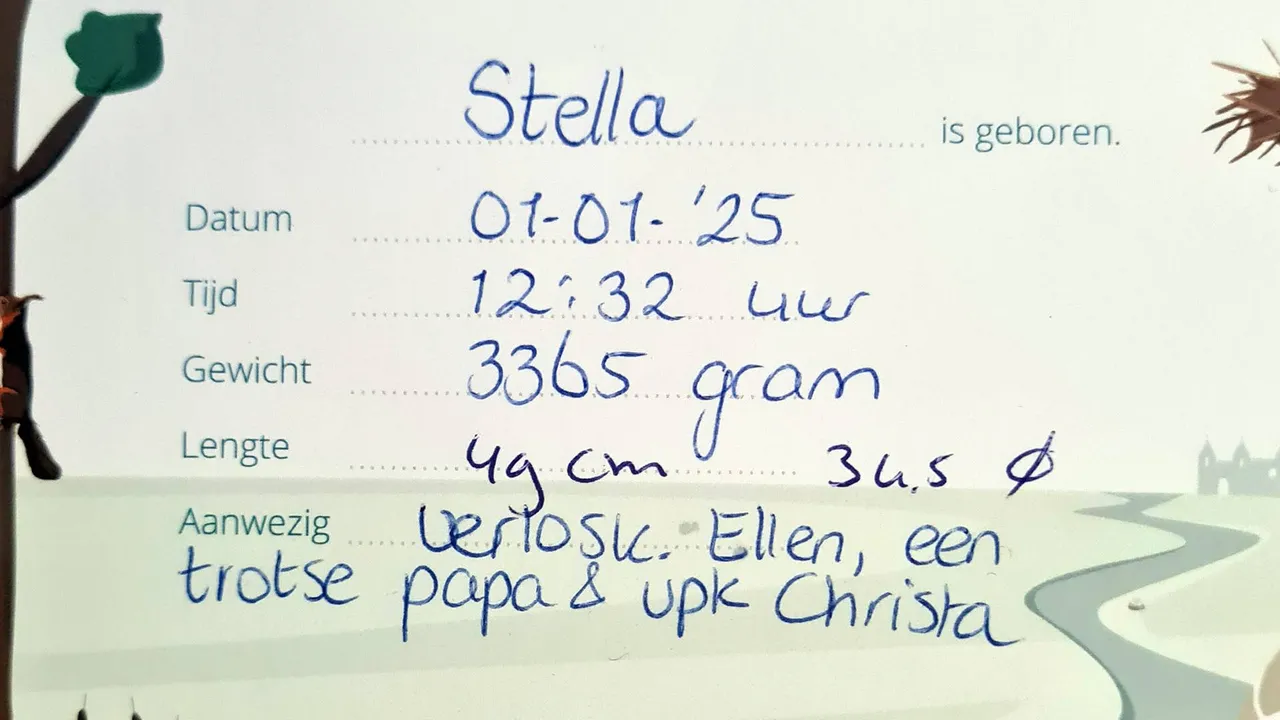 Stella is geboren.
Datum 01-01-'25
Tijd 12:32 uur
Gewicht 3365 gram
Lengte 49 cm 34.5 ø
Aanwezig verlosk. Ellen, een
trotse papa & vpk Christa